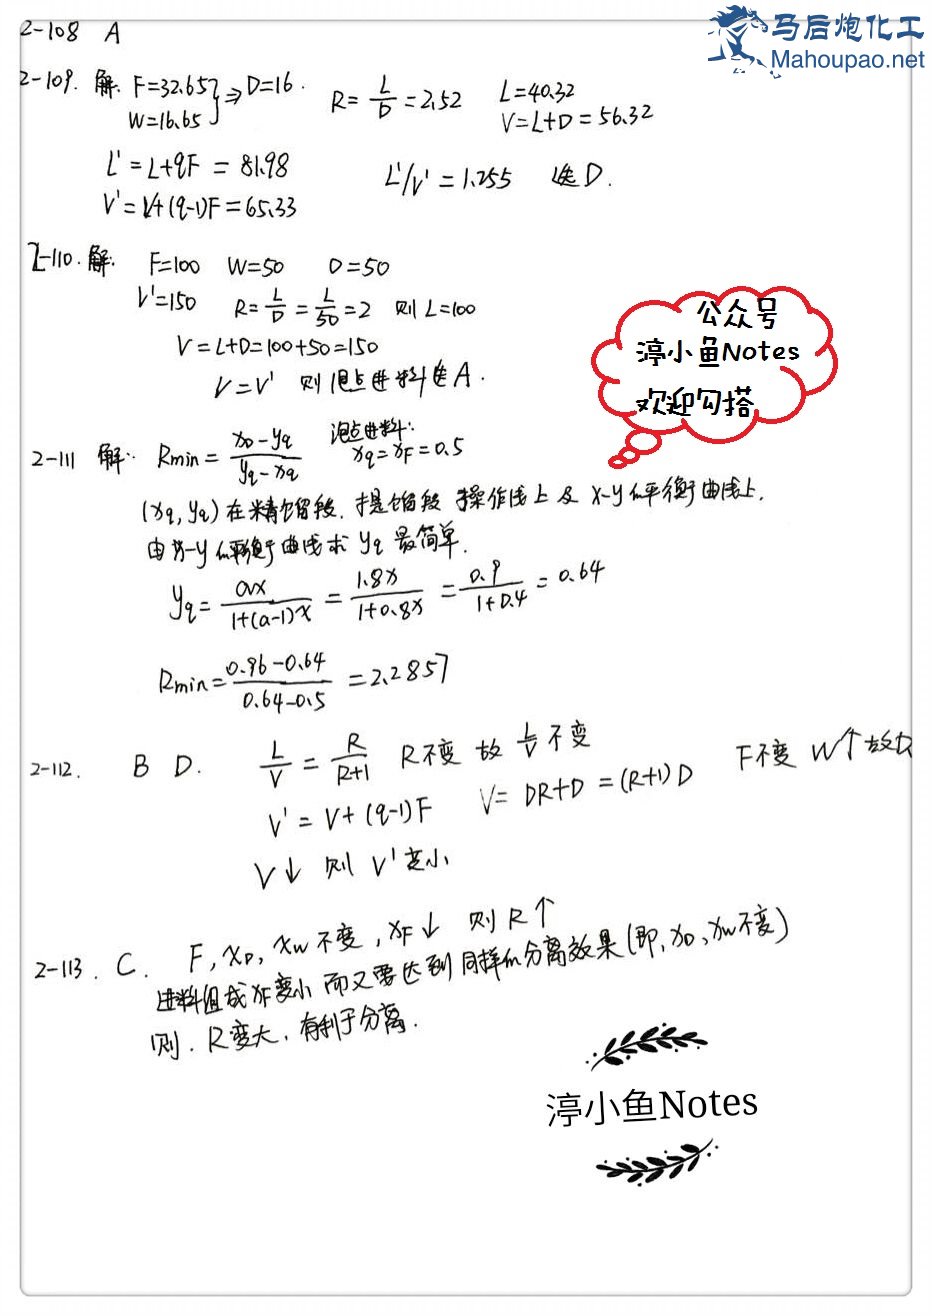 马后炮化工
Mahoupao.net
2-108 A
2-109. 解. F=32.65 W=16.65 } ⇒ D=16. R= L/D =2.52 L=40.32
V=L+D=56.32
L'=L+qF=81.98 L'/V'=1.255 选D.
V'=V+(q-1)F=65.33
2-110. 解. F=100 W=50 D=50
V'=150 R= L/D = L/50 =2 则L=100
V=L+D=100+50=150
V=V' 则泡点进料选A.
公众号
渟小鱼Notes
欢迎勾搭
2-111 解: Rmin= (xD-yq)/(yq-xq) 泡点进料: xq=xF=0.5
(xq,yq)在精馏段、提馏段操作线上及x-y的平衡曲线上.
由x-y的平衡曲线求yq最简单.
yq= αx/(1+(α-1)x) = 1.8x/(1+0.8x) = 0.9/(1+0.4) =0.64
Rmin= (0.96-0.64)/(0.64-0.5) =2.2857
2-112. B D. L/V = R/(R+1) R不变故 L/V 不变 F不变 W↑故D
V'=V+(q-1)F V=DR+D=(R+1)D
V↓ 则V'变小
2-113. C. F,xD,xW不变,xF↓ 则R↑
进料组成xF变小而又要达到同样的分离效果(即,xD、xW不变)
则.R变大,有利于分离.
渟小鱼Notes